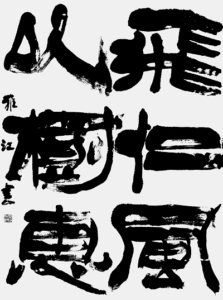 飛仁風
以樹惠
雅江書